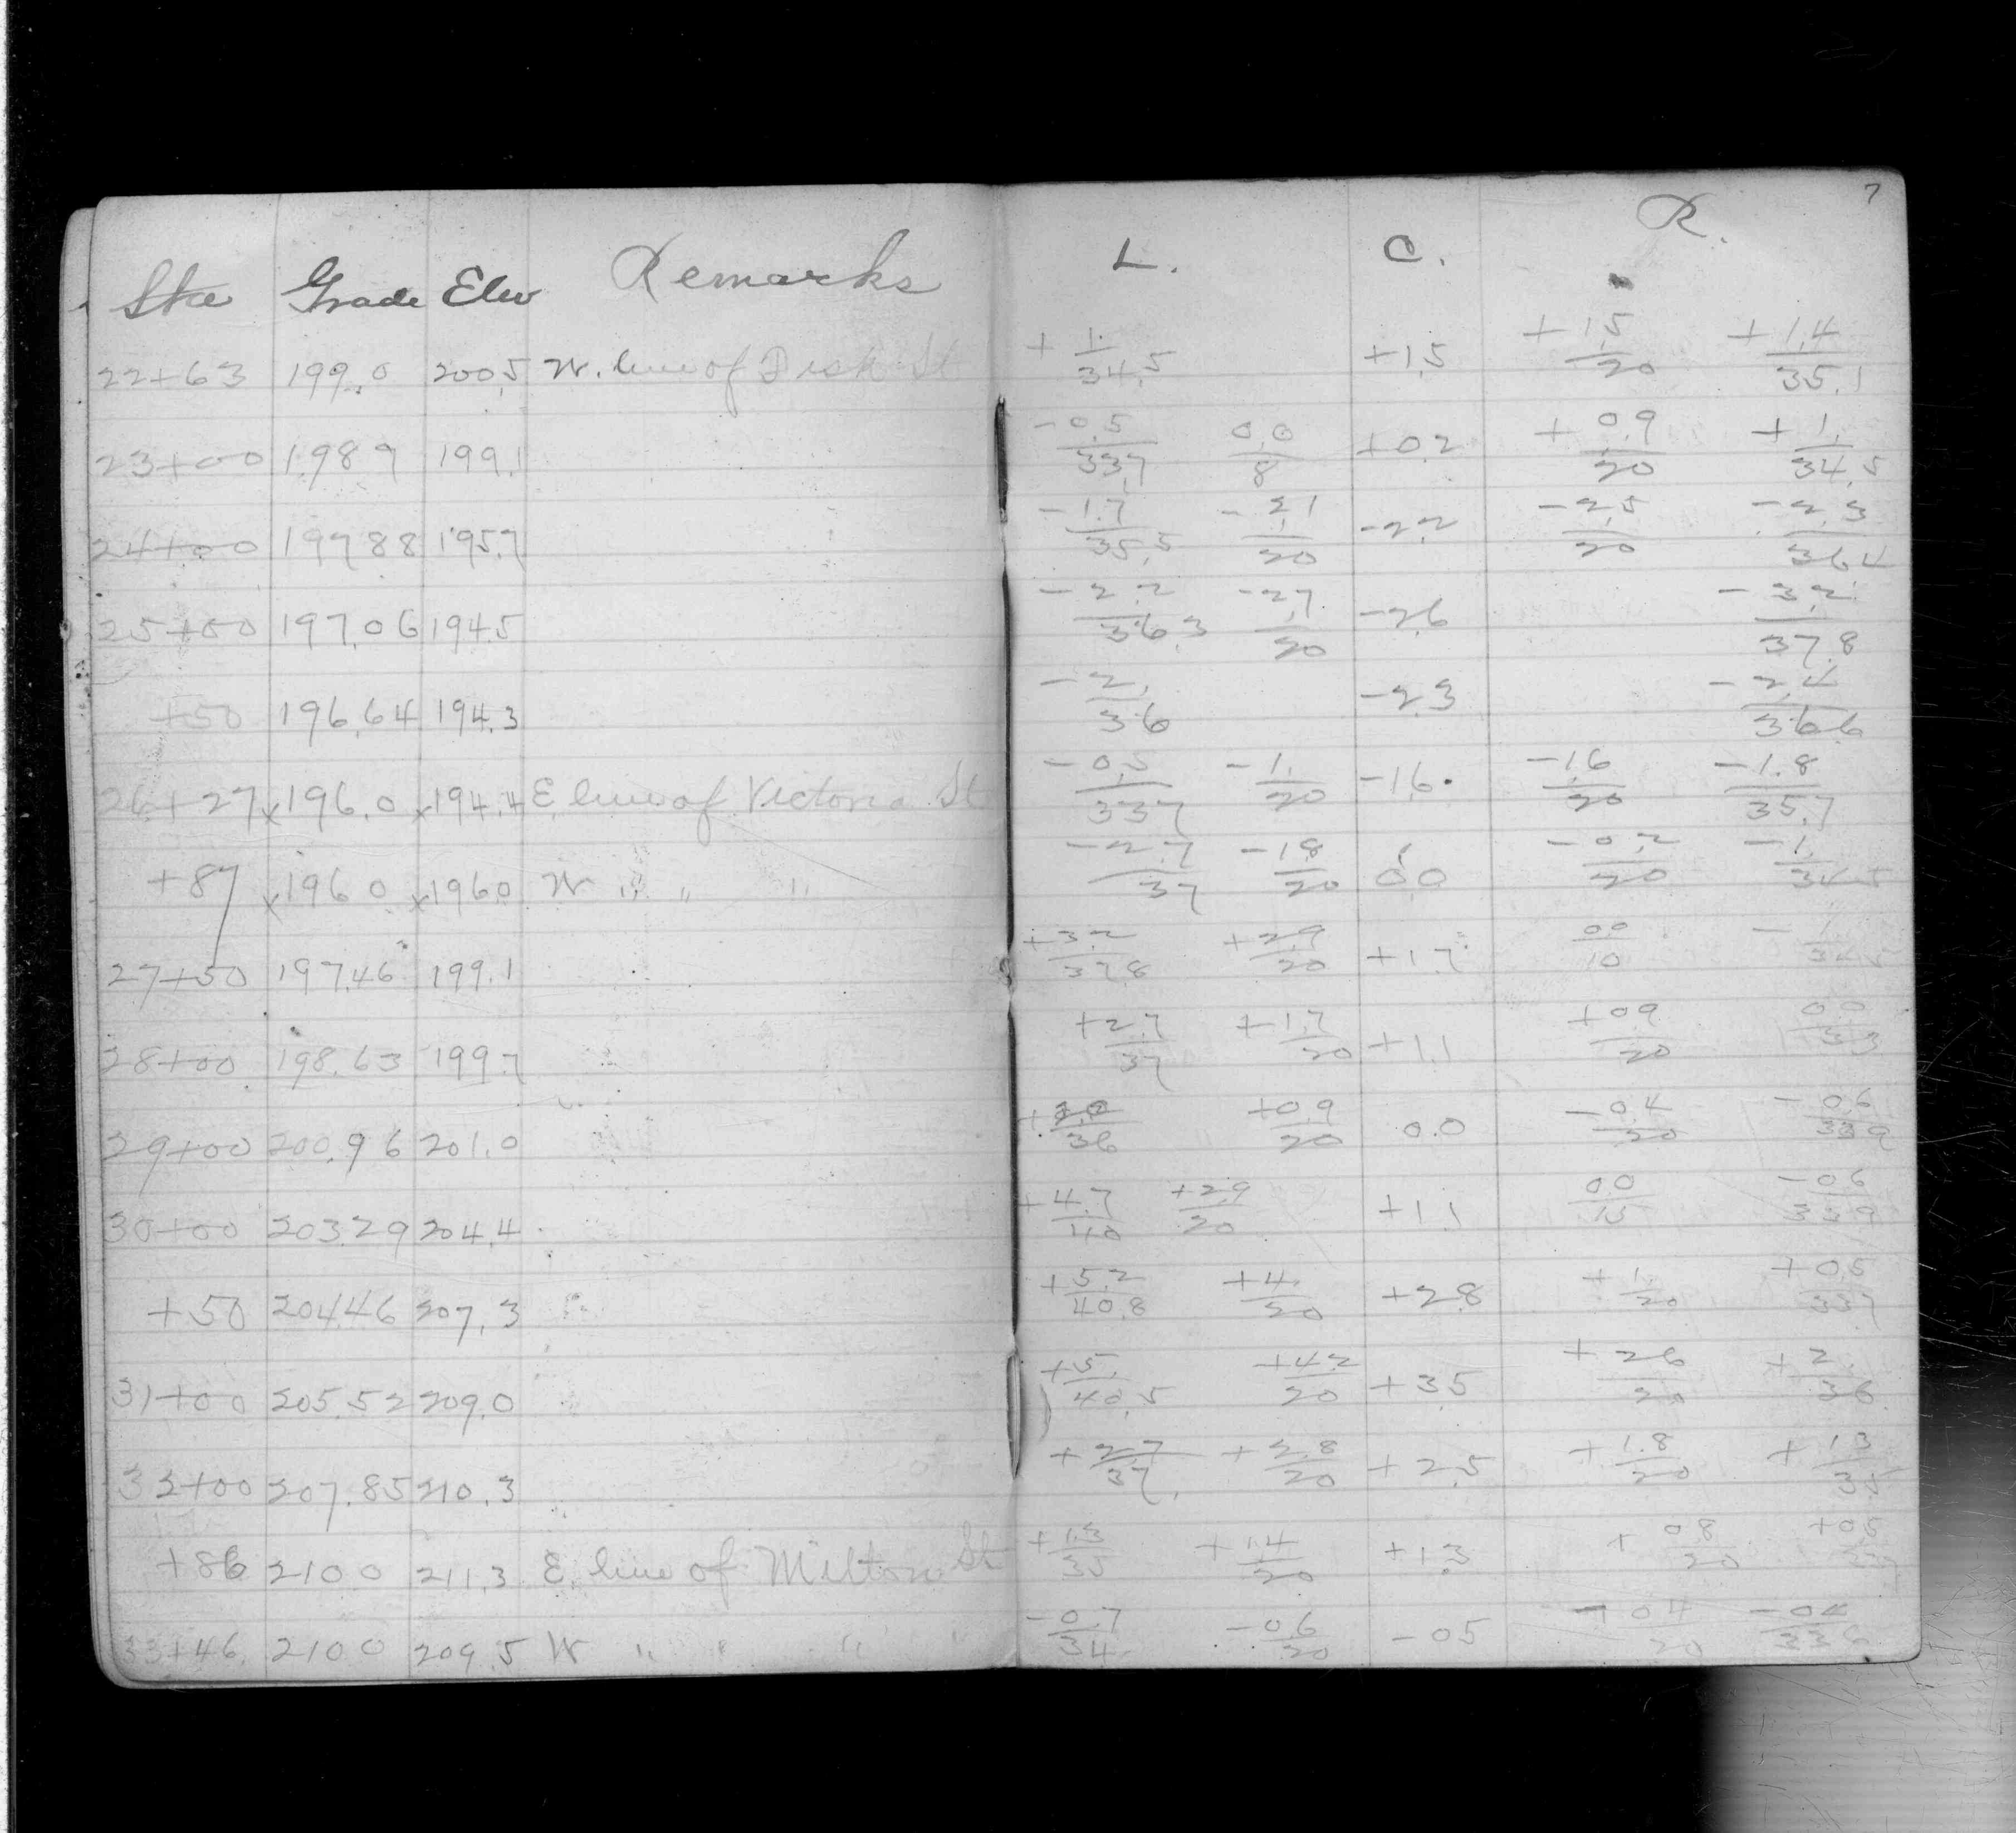 7
Sta Grade Elev Remarks L. C. R.
22+63 199.0 200.5 W. line of St +1./34.5 +1.5 +1.5/20 +1.4/35.1
23+00 198.9 199.1 -0.5/33.7 0.0/8 +0.2 +0.9/20 +1./34.5
24+00 197.88 195.7 -1.7/35.5 -2.1/20 -2.2 -2.5/20 -2.3/36.4
25+00 197.06 194.5 -2.2/36.3 -2.7/20 -2.6 -3.2/37.8
+50 196.64 194.3 -2./36 -2.3 -2.4/36.6
26+27 x196.0 x194.4 E line of Victoria St -0.5/33.7 -1./20 -1.6 -1.6/20 -1.8/35.7
+87 x196.0 x196.0 W " " " -2.7/37 -1.8/20 0.0 -0.2/20 -1./34.5
27+50 197.46 199.1 +3.2/37.8 +2.9/20 +1.7 0.0/10 -1./34.5
28+00 198.63 199.7 +2.7/37 +1.7/20 +1.1 +0.9/20 0.0/33
29+00 200.96 201.0 +2.0/36 +0.9/20 0.0 -0.4/20 -0.6/33.9
30+00 203.29 204.4 +4.7/40 +2.9/20 +1.1 0.0/15 -0.6/33.9
+50 204.46 207.3 +5.2/40.8 +4./20 +2.8 +1./20 +0.5/33.7
31+00 205.52 209.0 +5./40.5 +4.2/20 +3.5 +2.6/20 +2./36
32+00 207.85 210.3 +2.7/37. +2.8/20 +2.5 +1.8/20 +1.3/35
+86 210.0 211.3 E line of Milton St +1.3/35 +1.4/20 +1.3 +0.8/20 +0.5/33.7
33+46 210.0 209.5 W " " " " -0.7/34. -0.6/20 -0.5 -0.4/20 -0.4/33.6